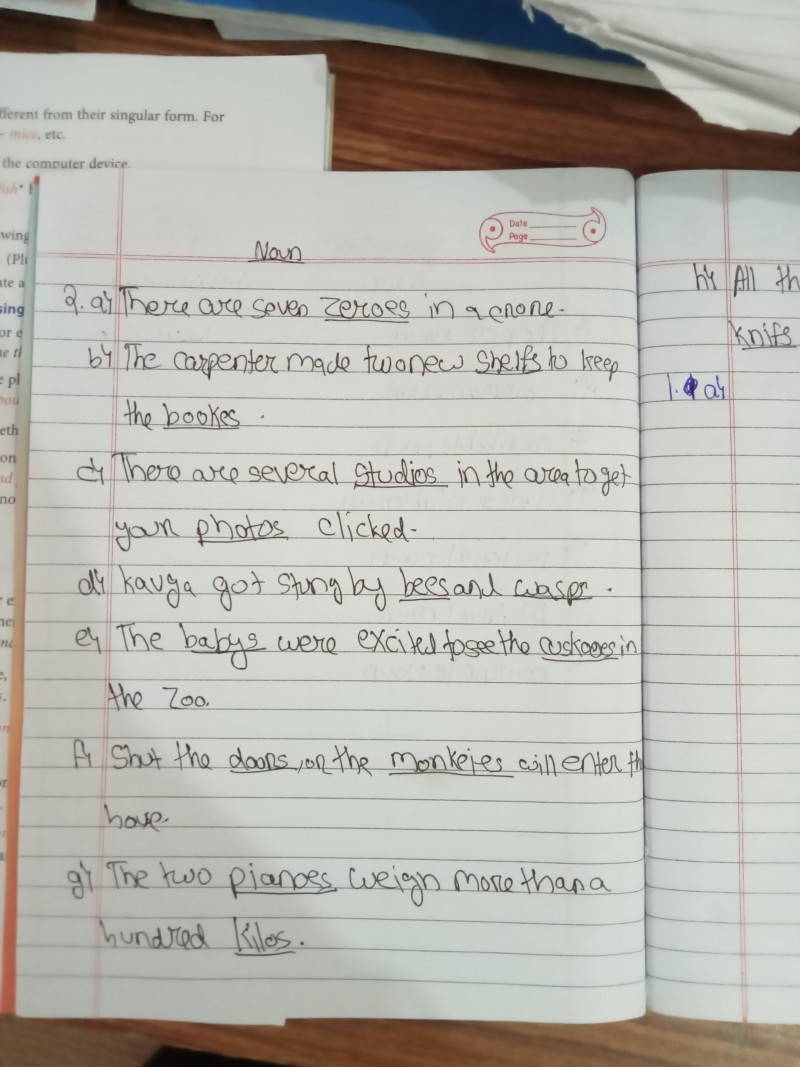 fferent from their singular form. For
- mice, etc.
the computer device.
Date
Page
Noun
2. a) There are seven zeroes in a crore.
b) The carpenter made two new shelfs to keep
the bookes.
c) There are several studios in the area to get
your photos clicked.
d) Kavya got stung by bees and wasps.
e) The babys were excited to see the in
the Zoo.
f) Shut the doors, or the monkeies will enter th
g) The two pianoes weigh more than a
hundred kilos.
h) All th
knifs
1. a)